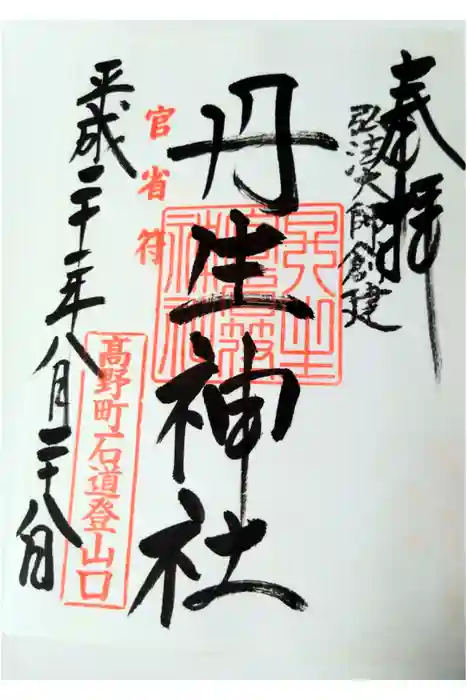 奉拝
弘法大師創建
丹生神社
官省符
高野町石道登山口
平成二十一年八月二十八日